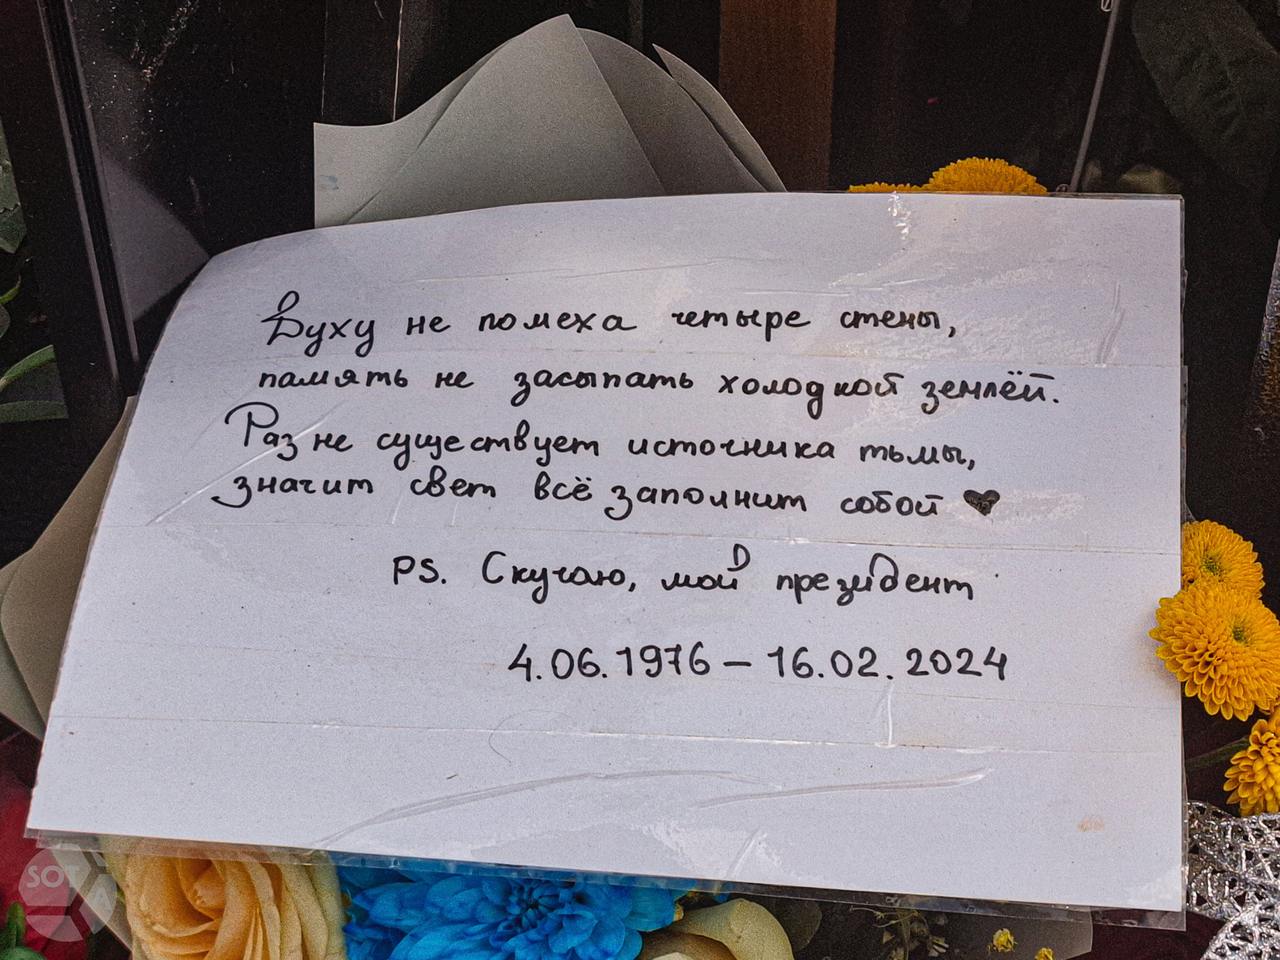 Духу не помеха четыре стены,
память не засыпать холодной землёй.
Раз не существует источника тьмы,
значит свет всё заполнит собой ♥
PS. Скучаю, мой президент
4.06.1976 – 16.02.2024
SOTA